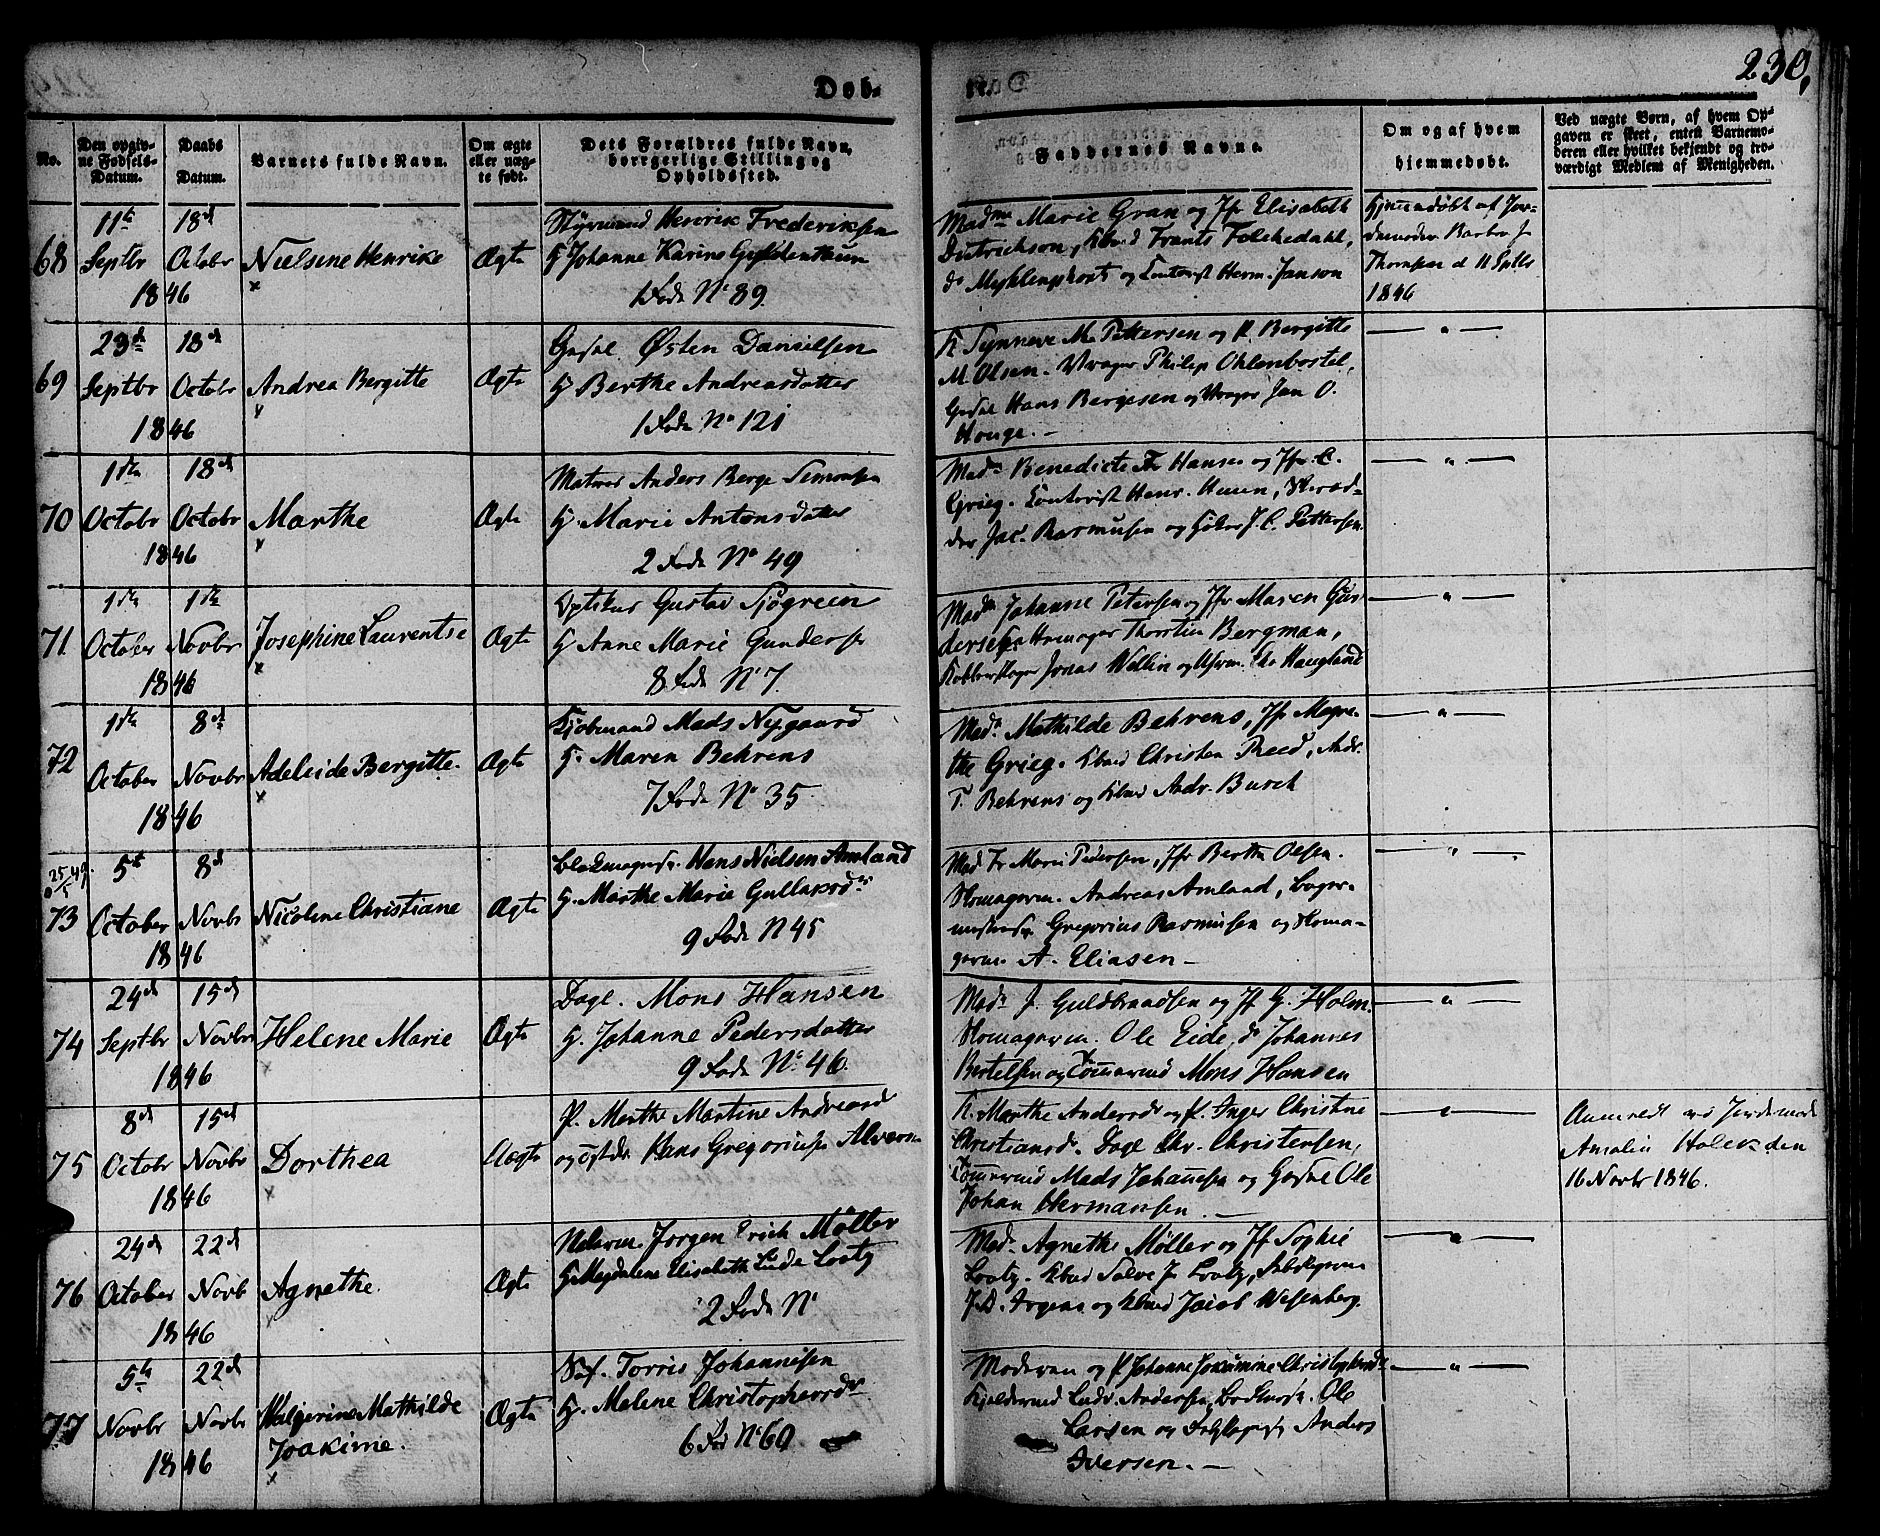 230.
Døb-
No.
Den opgiv-
ne Fødsels-
Datum.
Daabs
Datum.
Barnets fulde Navn.
Om ægte
eller uæg-
te født.
Dets Forældres fulde Navn,
borgerlige Stilling og
Opholdssted.
Faddernes Navne.
Om og af hvem
hjemmedøbt.
Ved uægte Børn, af hvem Op-
gaven er skeet, enten Barnemo-
deren eller hvilket bekjendt og tro-
værdigt Medlem af Menigheden.
68
11te Septbr 1846
18d October
Nielsine Henrike
Ægte
Styrmand Henrik Frederiksen
H Johanne Karine
1 Fode No 89.
Madme Marie Gran og Jfr Elisabeth
Dietrichson, Kbmd Frants Folkedahl,
do Myklenpkost og Contorist Herm. Janson
Hjemmedøbt af Jor-
demoder Barbra J
Thornsen d 11 Sptbr
1846
69
23d Septbr 1846
18d October
Andrea Bergitte
Ægte
Østen Danielsen
H Berthe Andreasdatter
1 Fode No 121
K Synneve M. Pettersen og P. Bergitte
M. Olsen. Vrager Philip Ohlenbostel,
Hans Bergesen og Vrager Jan O.
Houge. -
— " —
70
1ste October 1846
18d October
Marthe
Ægte
Matros Anders Berge Simonsen
H Marie Antonsdatter
2 Fode No 49
Made Benedicte Fr Hansen og Jfr C.
Grieg. Contorist Henr. , Skræd-
der Jac. Rasmusen og J. C. Pettersen.
— " —
71
1ste October 1846
1ste Novbr
Josephine Laurentse
Ægte
Gustav Sjøgreen
H Anne Marie Gundersen
8 Fode No 7.
Made Johanne Petersen og Jfr Maren Gun
dersen Thorstin Bergman,
Kobberslager Jonas Wallin og Haugland
— " —
72
1ste October 1846
8d Novbr
Adeleide Bergitte.
Ægte
Kjøbmand Mads Nygaard
H. Maren Behrens
7 Fode No 35
Made. Mathilde Behrens, Jfr Magre-
the Grieg. Kbmd Christen Reed, Andr.
T. Behrens og Kbmd Andr. Busch
— " —
73
5te October 1846
8d Novbr
Nicoline Christiane
Ægte
Hans Nielsen Amland
H. Marthe Marie
9 Fode N 45
Mad Fr Marie Pedersen, Jfr Berthe Olsen.
Skomagerm. Andreas Amland, Bager-
Gregorius Rasmusen og Skoma-
germ. A. Eliasen -
— " —
74
24d Septbr 1846
15d Novbr
Helene Marie
Ægte
Dagl. Mons Hansen
H. Johanne Pedersdatter
9 Fode No. 46.
Made J. Guldbrandsen og Jf G. Holm.
Skomagerm. Ole Eide, do Johannes
Bertelsen og Mons Hansen
— " —
75
8d October 1846
15d Novbr
Dorthea
Uægte
P. Marthe Martine Andreasd
og Hans Gregoriussen
K. Marthe Andersdr og P. Inger Christine
Christiansd. Dagl Chr. Christensen,
Mads Johannesen og Ole
Johan Hermansen. -
— " —
Anmeldt ved Jordemoder
Amalia Holck den
16 Novbr 1846.
76
24d October 1846
22d Novb
Agnethe.
Ægte
Jørgen Erich Møller
H Magdalene Elisabeth Lootz
2 Fode No
Made. Agnethe Møller og Jf Sophie
Lootz. Kbmd Salve J. Lootz,
J. D. Irgens og Kbmd Jacob Wesenberg.
— " —
77
5te Novbr 1846
22d Novbr
Walgerine Mathilde
Joakime.
Ægte
Torris Johannesen
H. Malene Christophersdr
6 Fod No 60.
Moderen og P Johanne
Ludv. Andersen, Ole
Larsen og Anders
Iversen. -
— " —